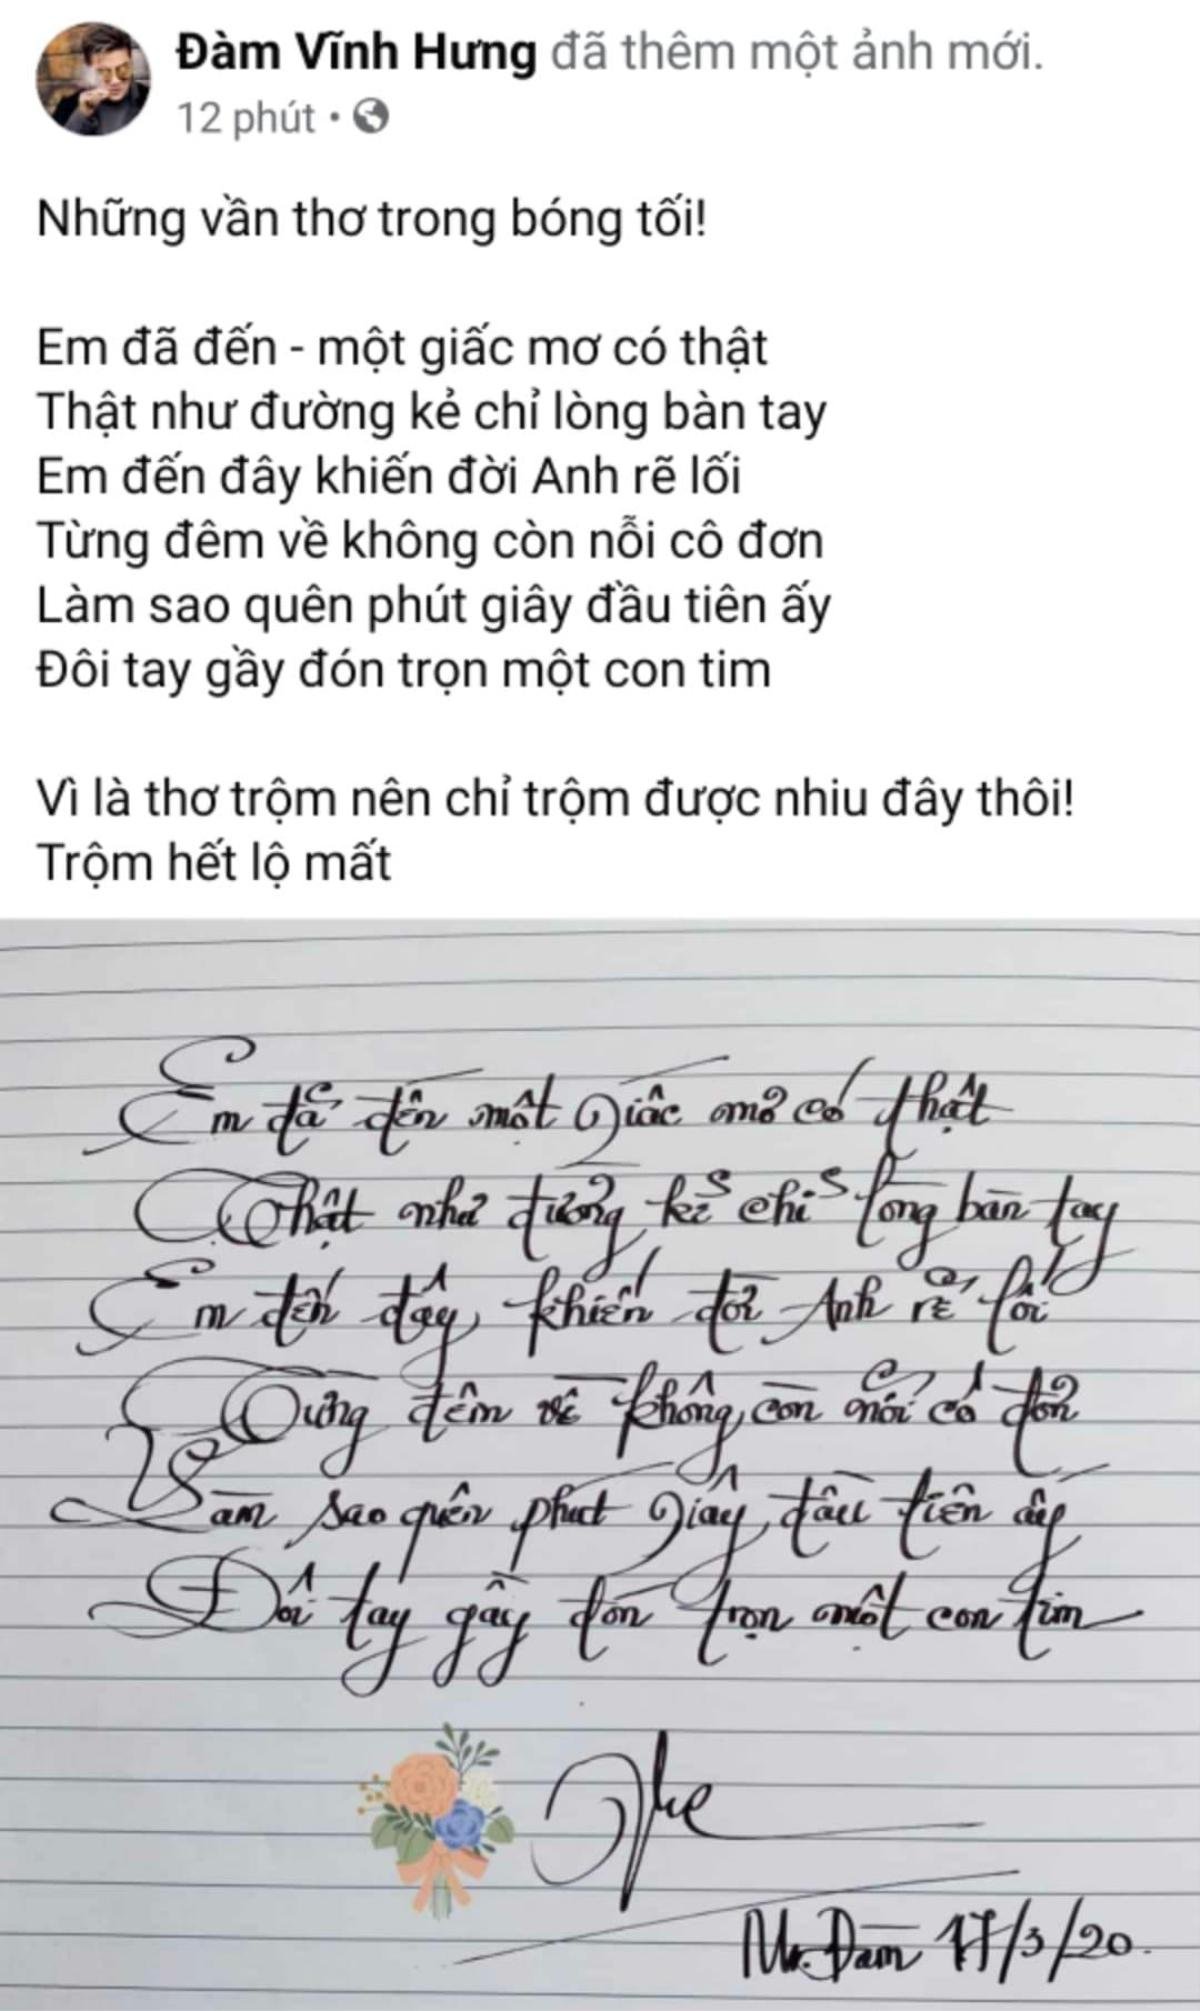 Đàm Vĩnh Hưng đã thêm một ảnh mới.
12 phút •
Những vần thơ trong bóng tối!
Em đã đến - một giấc mơ có thật
Thật như đường kẻ chỉ lòng bàn tay
Em đến đây khiến đời Anh rẽ lối
Từng đêm về không còn nỗi cô đơn
Làm sao quên phút giây đầu tiên ấy
Đôi tay gầy đón trọn một con tim
Vì là thơ trộm nên chỉ trộm được nhiu đây thôi!
Trộm hết lộ mất
Em đã đến một giấc mơ có thật
Thật như đường kẻ chỉ lòng bàn tay
Em đến đây khiến đời Anh rẽ lối
Từng đêm về không còn nỗi cô đơn
Làm sao quên phút giây đầu tiên ấy
Đôi tay gầy đón trọn một con tim
Mr. Đàm 17/3/20.